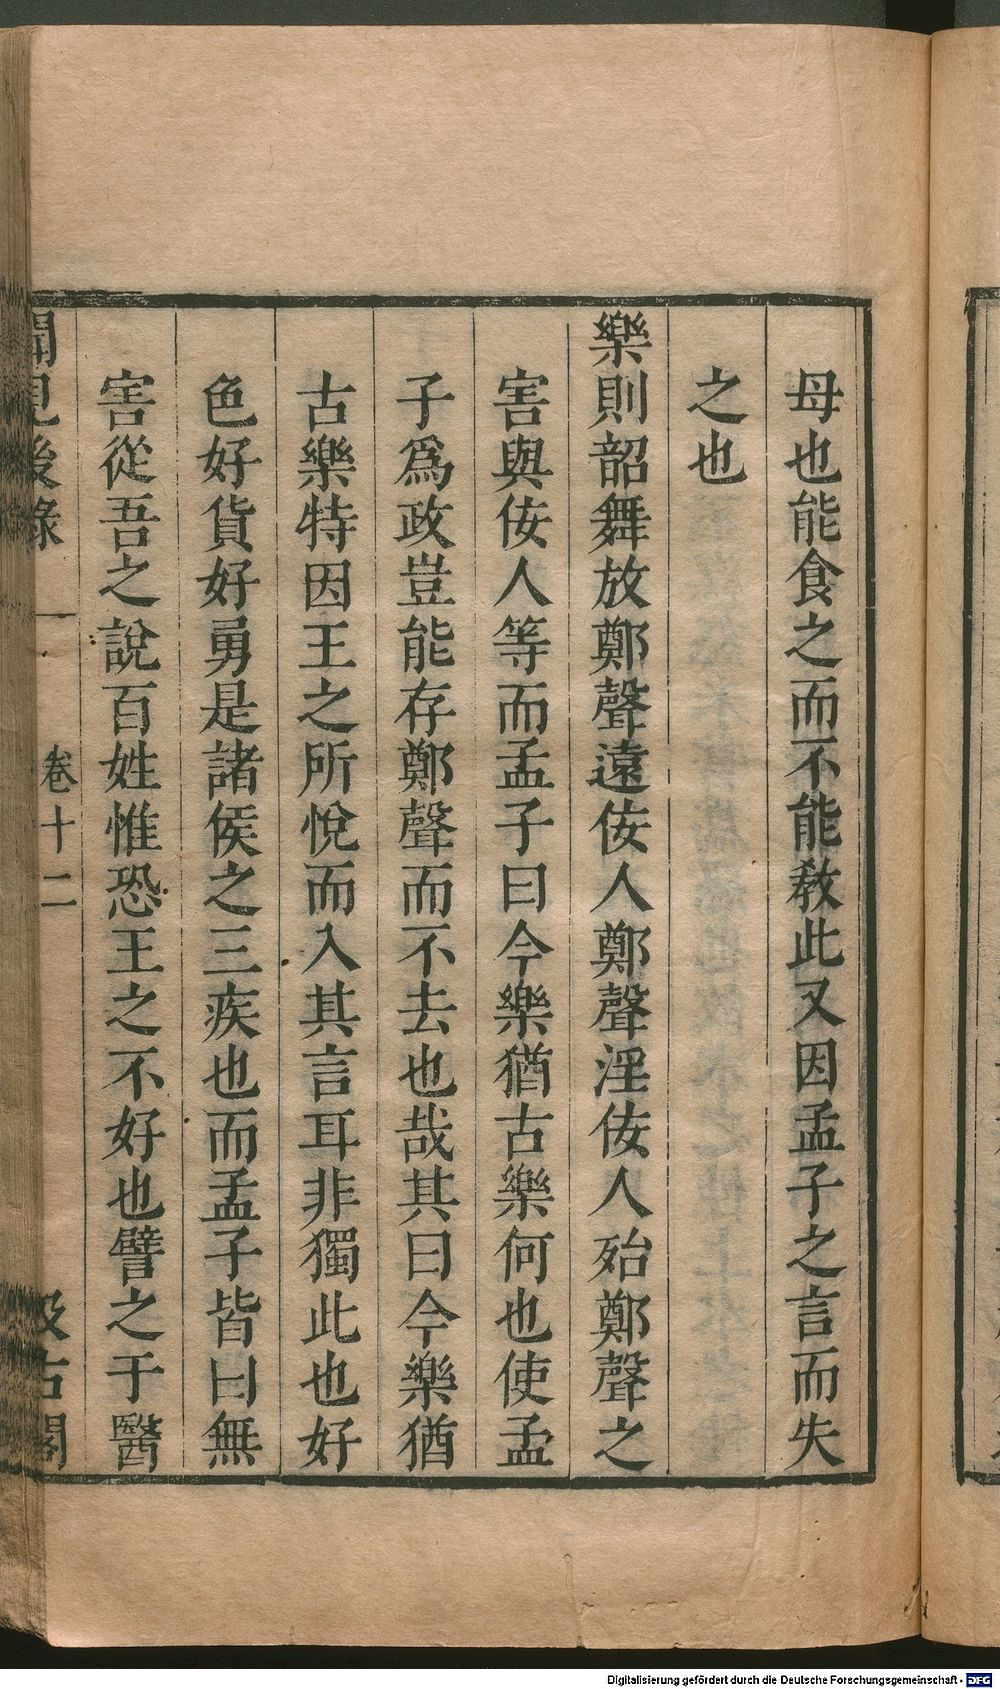 母也能食之而不能敎此又因孟子之言而失
之也
樂則韶舞放鄭聲遠佞人鄭聲淫佞人殆鄭聲之
害與佞人等而孟子曰今樂猶古樂何也使孟
子爲政豈能存鄭聲而不去也哉其曰今樂猶
古樂特因王之所悅而入其言耳非獨此也好
色好貨好勇是諸侯之三疾也而孟子皆曰無
害從吾之說百姓惟恐王之不好也譬之于醫
聞見後錄 卷十二 汲古閣
Digitalisierung gefördert durch die Deutsche Forschungsgemeinschaft - DFG